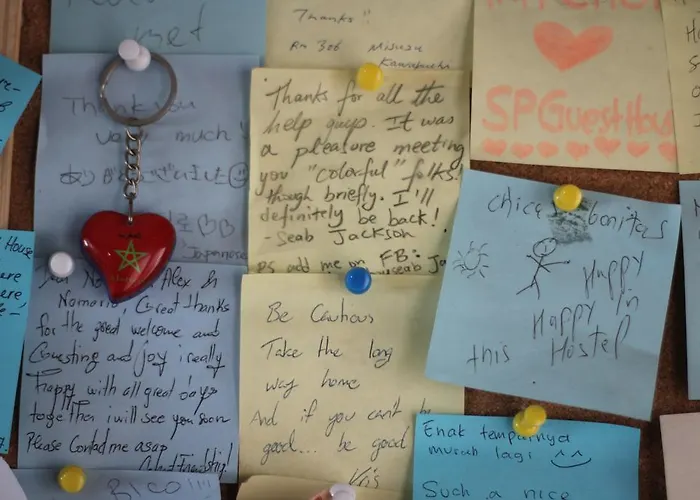 met
Thanks!!
Rm 306 Misuzu
Kawaguchi
SPGuestHou
Thank you
very much!
ありがとうございます
Japanese
Thanks for all the
help guys. It was
a pleasure meeting
you "colorful" folks!
though briefly. I'll
definitely be back!
- Seab Jackson
PS add me on FB:
chicas bonitas
Happy
Happy in
this Hostel
House
ere,
ere
Alex &
Great thanks
for the great welcome and
and joy i really
happy with all great days
together i will see you soon
Please Contact me asap
Be Cautious
Take the long
way home
And if you can't be
good... be good
Kris
Enak tempatnya
murah lagi
Such a nice
RICO!!!